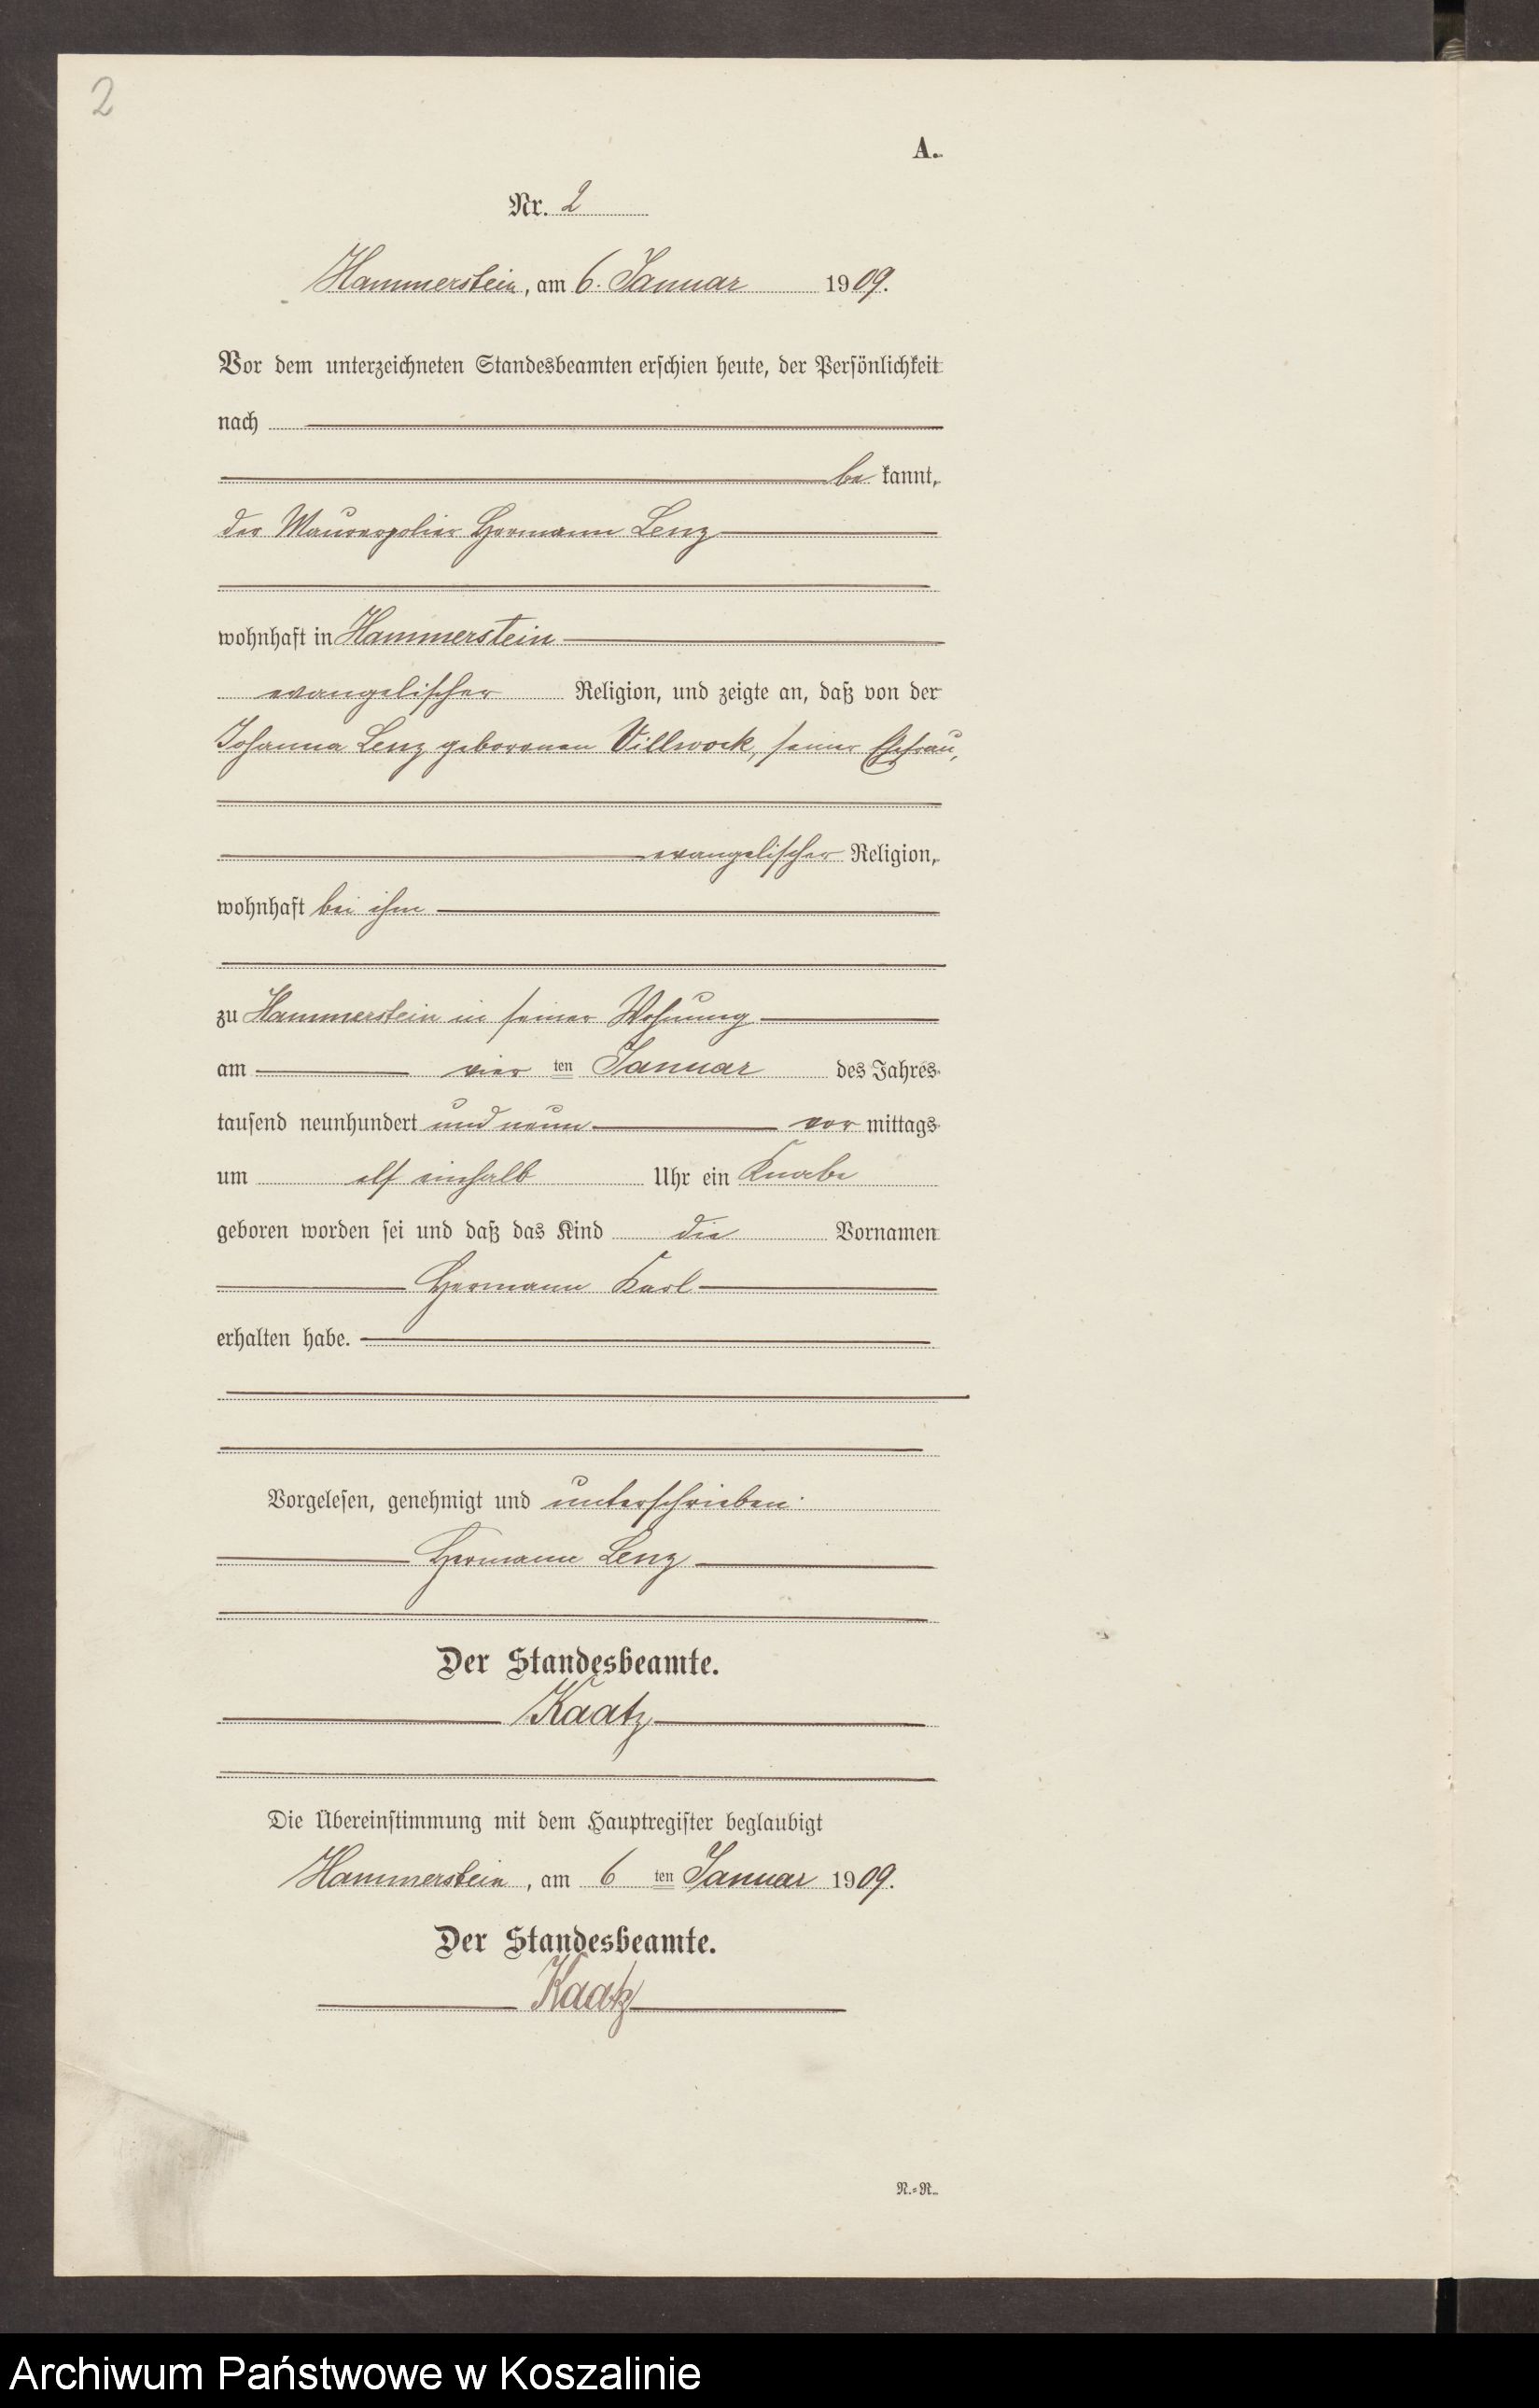 2
A.
Nr. 2
Hammerstein, am 6. Januar 1909.
Vor dem unterzeichneten Standesbeamten erschien heute, der Persönlichkeit
nach
be kannt,
der Maurerpolier Hermann Lenz
wohnhaft in Hammerstein
evangelischer Religion, und zeigte an, daß von der
Johanna Lenz geborenen Villwock, seiner Ehefrau,
evangelischer Religion,
wohnhaft bei ihm
zu Hammerstein in seiner Wohnung
am vier ten Januar des Jahres
tausend neunhundert und neun vor mittags
um elf einhalb Uhr ein Knabe
geboren worden sei und daß das Kind die Vornamen
Hermann Karl
erhalten habe.
Vorgelesen, genehmigt und unterschrieben
Hermann Lenz
Der Standesbeamte.
Kaatz
Die Übereinstimmung mit dem Hauptregister beglaubigt
Hammerstein, am 6 ten Januar 1909.
Der Standesbeamte.
Kaatz
N.=R.
Archiwum Państwowe w Koszalinie